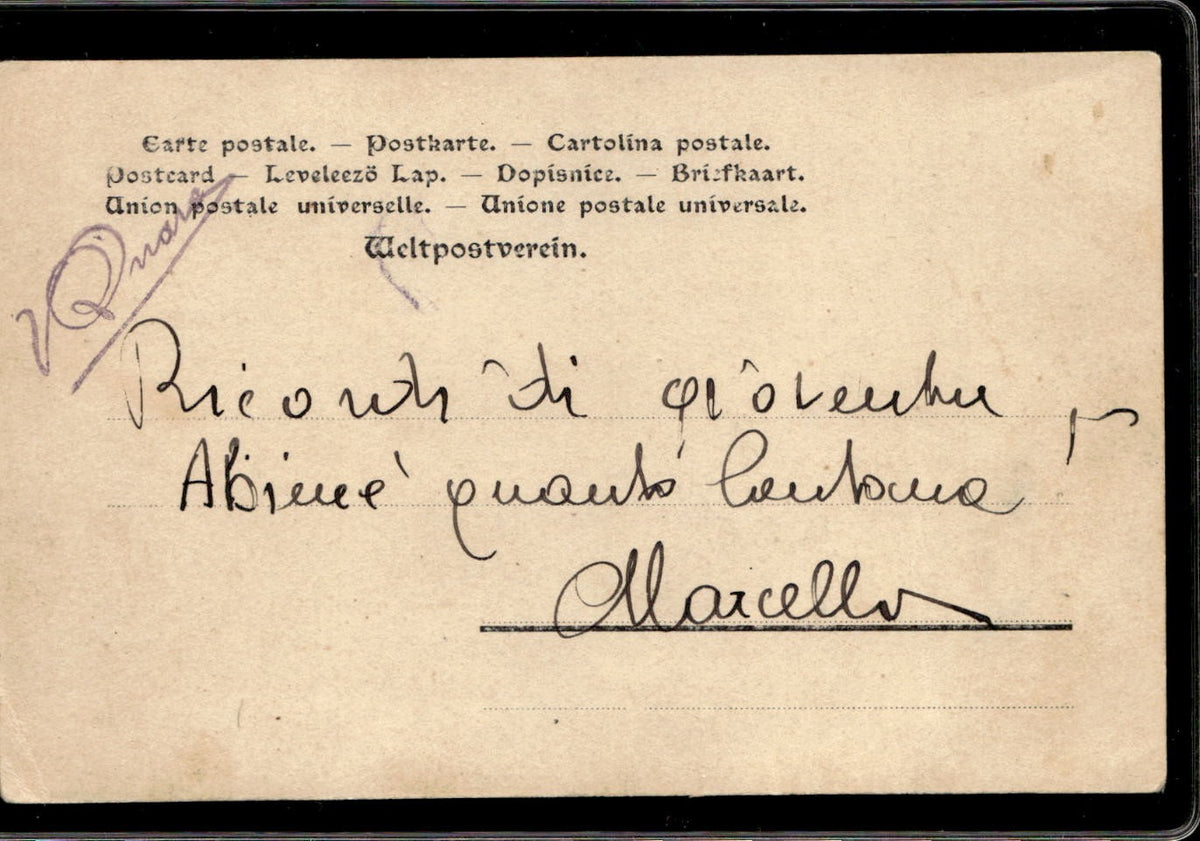 Carte postale. — Postkarte. — Cartolina postale.
Postcard — Leveleezö Lap. — Dopisnice. — Briefkaart.
Union postale universelle. — Unione postale universale.
Weltpostverein.
Ricordi di gioventu,
Ahimé quanto lontana
Marcello